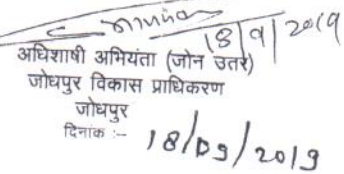 18/9/2019
अधिशाषी अभियंता (जोन उतर)
जोधपुर विकास प्राधिकरण
जोधपुर
दिनांक :- 18/09/2019